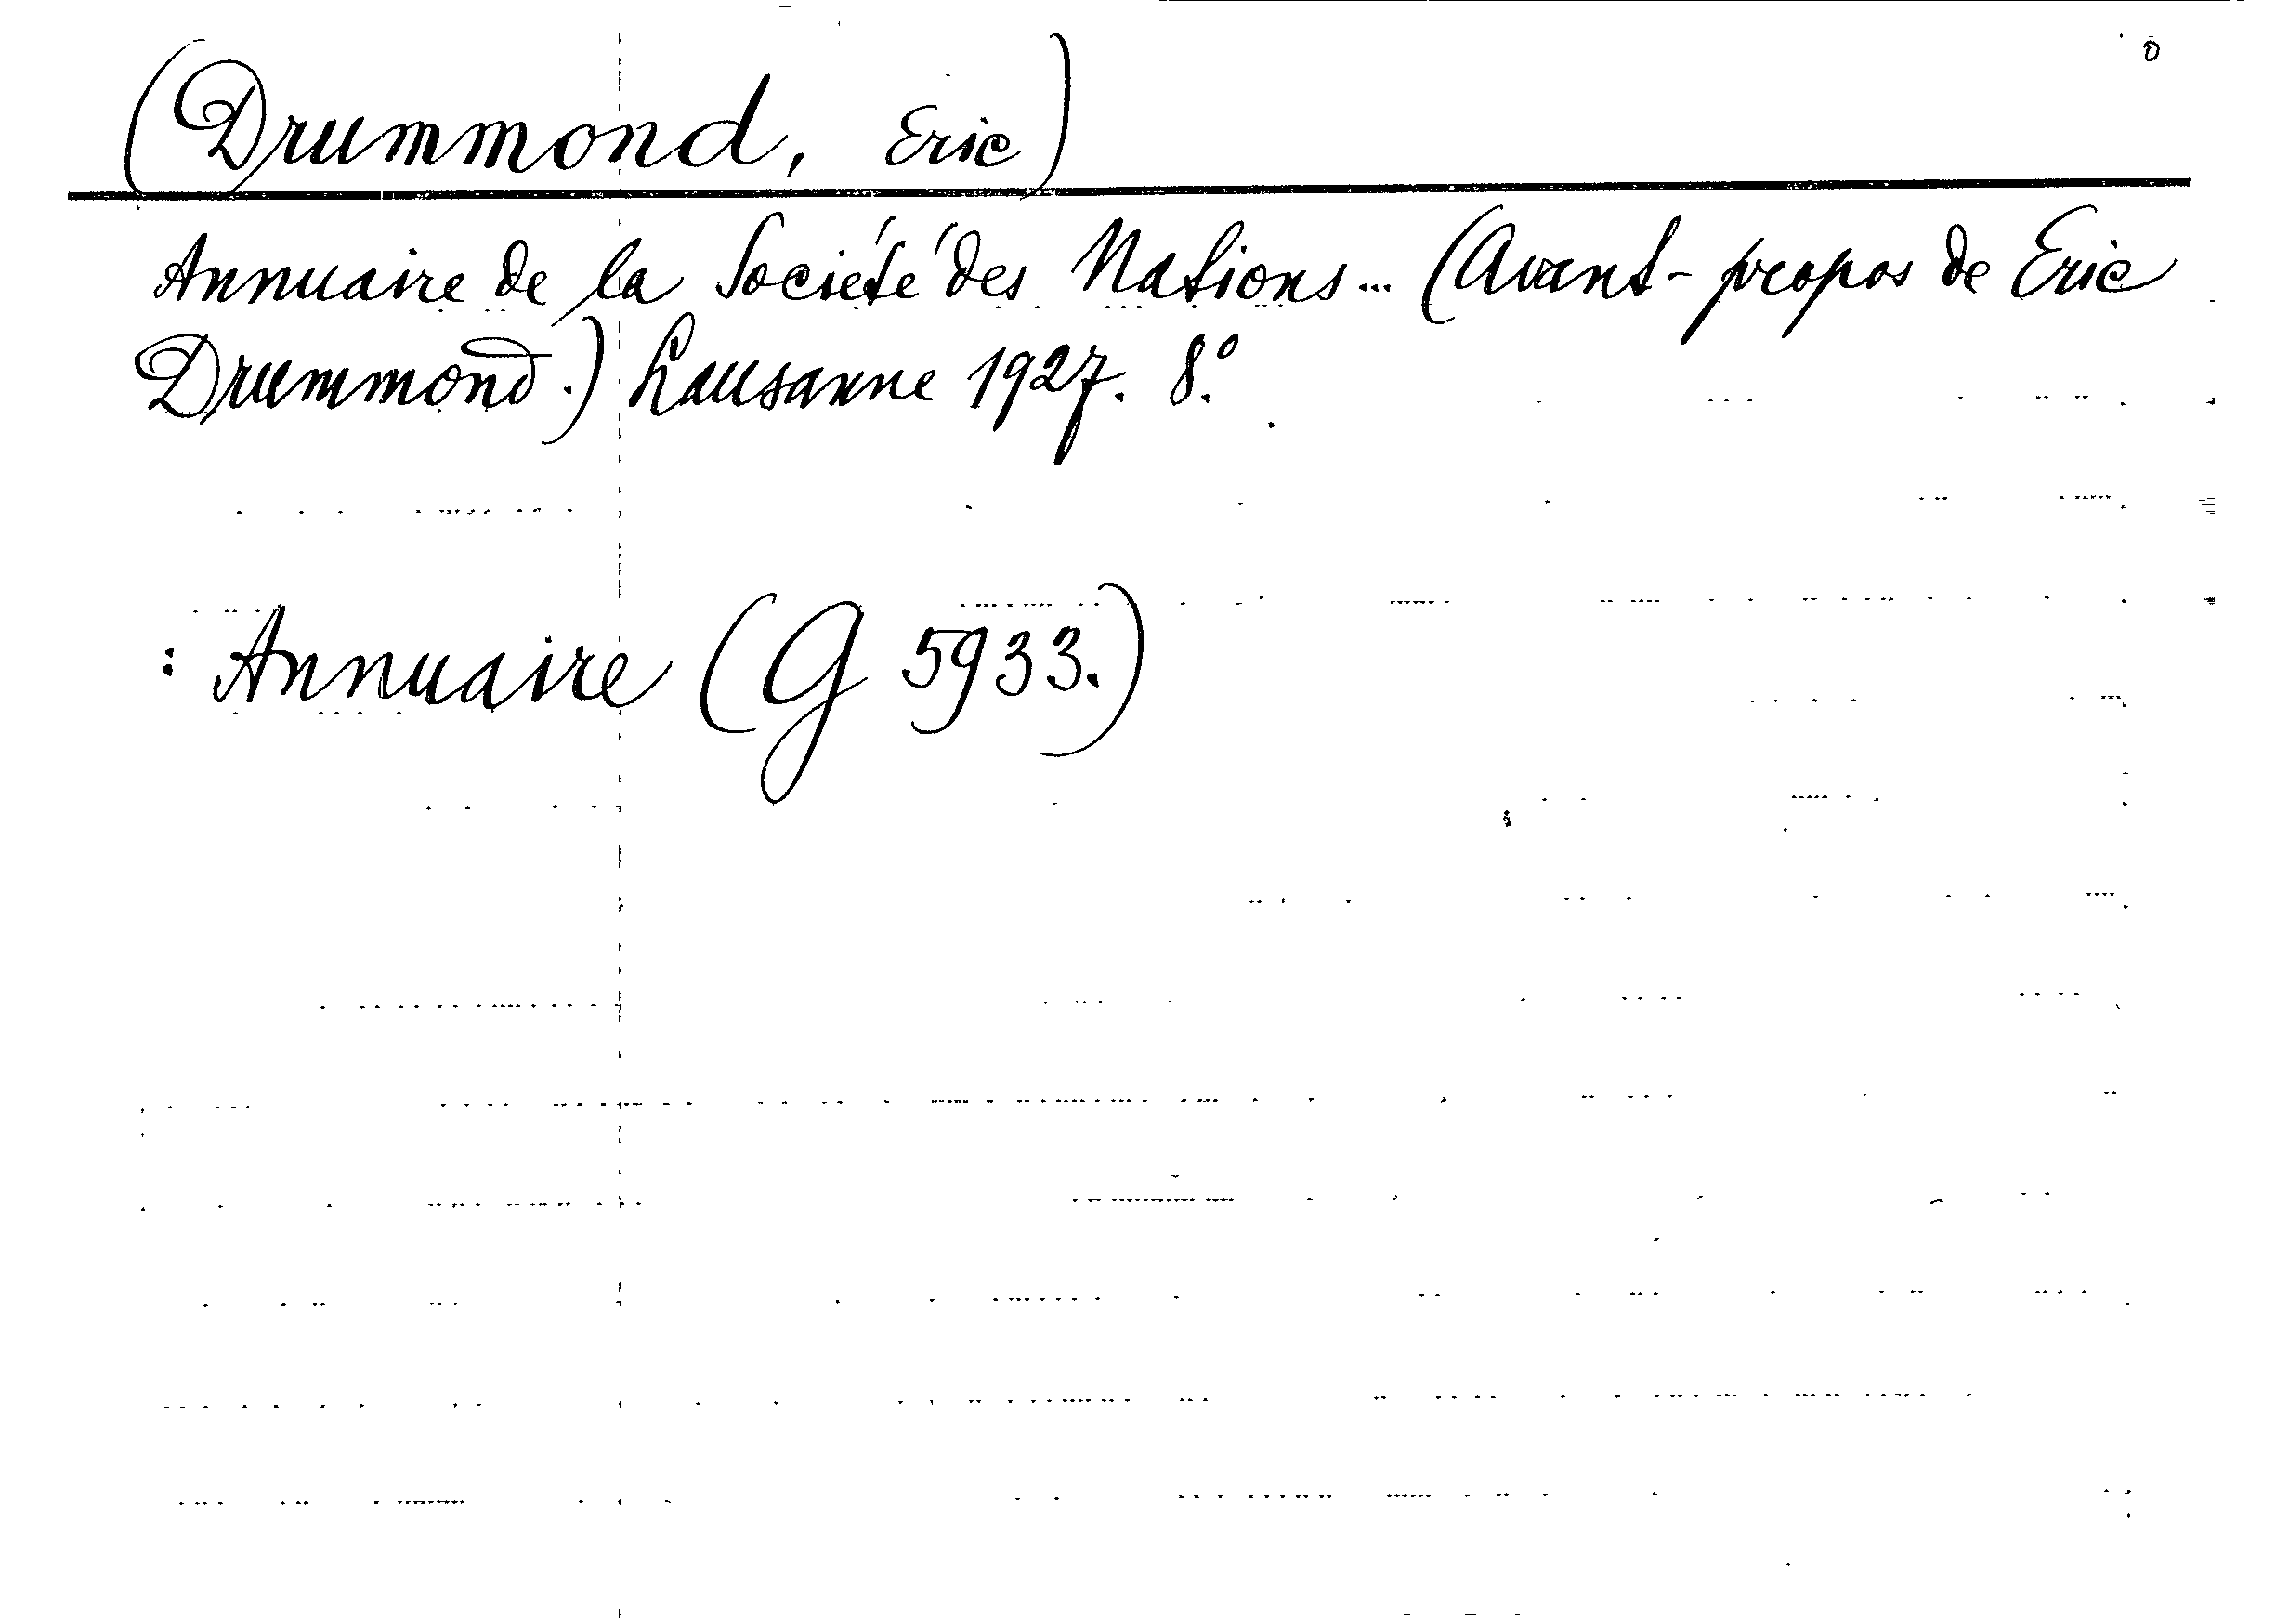 (Drummond, Eric)
Annuaire de la Société des Nations... (Avant-propos de Eric
Drummond.) Lausanne 1927. 8.°
: Annuaire (G 5933.)